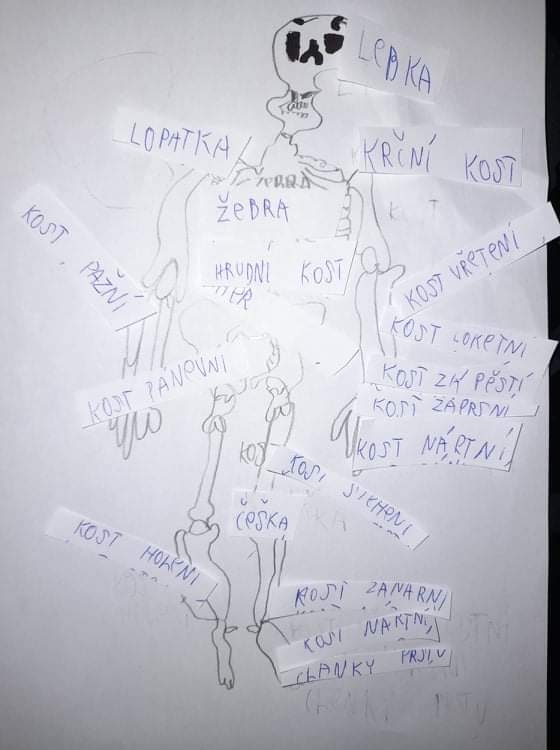 LEBKA
LOPATKA
KŘČNÍ KOST
ŽEBRA
KOST PAŽNÍ
HRUDNÍ KOST
KOST VŘETENÍ
KOST LOKETNÍ
KOST PÁNEVNI
KOST ZÁPĚSTÍ
KOST ZÁPRSNI
KOST NÁRTNÍ
KOST STEHENÍ
ČĚŠKA
KOST HOLENÍ
KOST ZÁNARNÍ
KOST NÁRTNÍ
CLANKY PRSTU